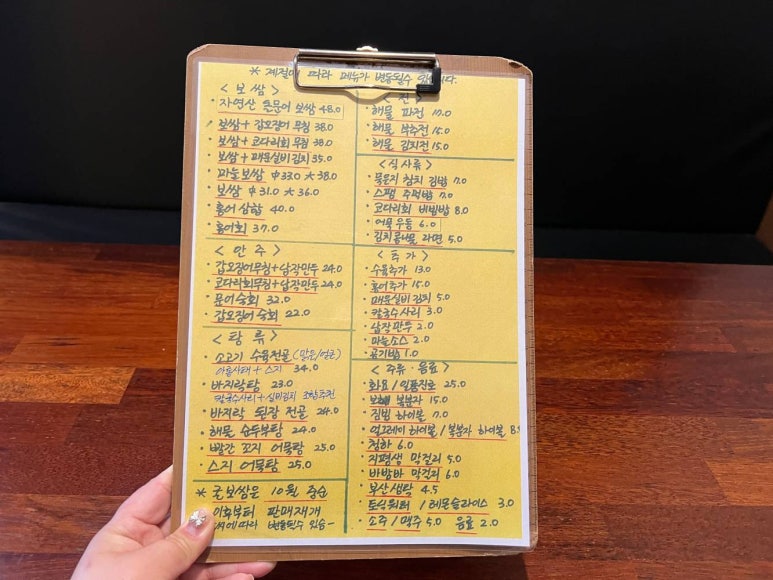 * 계절에 따라 메뉴가 변동될수 있습니다.
< 보 쌈 >
· 자연산 돌문어 보쌈 48.0
· 보쌈 + 갑오징어 무침 38.0
· 보쌈 + 코다리회 무침 38.0
· 보쌈 + 매운실비김치 35.0
· 마늘보쌈 中33.0 大38.0
· 보쌈 中31.0 大36.0
· 홍어 삼합 40.0
· 홍어회 37.0
< 안 주 >
· 갑오징어무침+납작만두 24.0
· 코다리회무침+납작만두 24.0
· 문어숙회 32.0
· 갑오징어 숙회 22.0
< 탕 류 >
· 소고기 수육전골 (맑은/얼큰)
아롱사태 + 스지 34.0
· 바지락탕 23.0
칼국수사리 + 실비김치 조합추천
· 바지락 된장 전골 24.0
· 해물 순두부탕 24.0
· 빨간 꼬지 어묵탕 25.0
· 스지 어묵탕 25.0
* 굴보쌈은 10월 중순
이후부터 판매재개
따라 변동될수 있음~
< 전 >
· 해물 파전 17.0
· 해물 부추전 15.0
· 해물 김치전 15.0
< 식사류 >
· 묵은지 참치 김밥 7.0
· 스팸 주먹밥 7.0
· 코다리회 비빔밥 8.0
· 어묵우동 6.0
· 김치콩나물 라면 5.0
< 추 가 >
· 수육추가 13.0
· 홍어추가 15.0
· 매운실비김치 5.0
· 칼국수사리 3.0
· 납작만두 2.0
· 마늘소스 2.0
· 공기밥 1.0
< 주류 · 음료 >
· 화요 / 일품진로 25.0
· 보해 복분자 15.0
· 짐빔 하이볼 7.0
· 얼그레이 하이볼 / 복분자 하이볼 8
· 청하 6.0
· 지평생 막걸리 5.0
· 바밤바 막걸리 6.0
· 부산생탁 4.5
· 토닉워터 / 레몬슬라이스 3.0
· 소주 / 맥주 5.0 음료 2.0